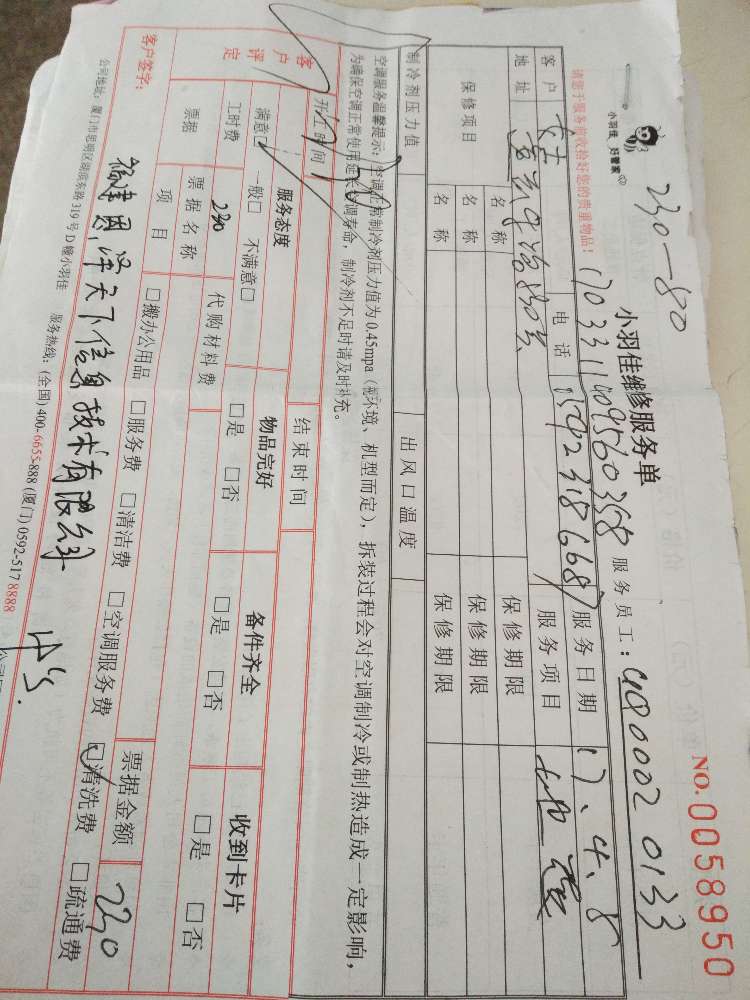 230-80
小羽佳 好管家
小羽佳维修服务单
NO.0058950
请您于服务前收拾好您的贵重物品!
1703311409560358
服务员工:
0002 0133
客户
电话
服务日期
17、4、8
地址
服务项目
保修项目
名称
保修期限
名称
保修期限
名称
保修期限
制冷剂压力值
出风口温度
空调服务温馨提示:空调正常制冷剂压力值为0.45mpa(视环境、机型而定),拆装过程会对空调制冷或制热造成一定影响,
为确保空调正常使用延长空调寿命,制冷剂不足时请及时补充。
开工时间
结束时间
客户评定
服务态度
物品完好
备件齐全
收到卡片
满意□ 一般□ 不满意□
□是 □否
□是 □否
□是 □否
工时费
230
代购材料费
票据
票据名称
票据金额
230
项目
□搬办公用品 □服务费 □清洁费 □空调服务费 □清洗费 □疏通费
客户签字:
福建因泽天下信息技术有限公司
公司地址:厦门市思明区湖滨东路319号D幢小羽佳 服务热线:(全国)400-6655-888 (厦门)0592-517 8888